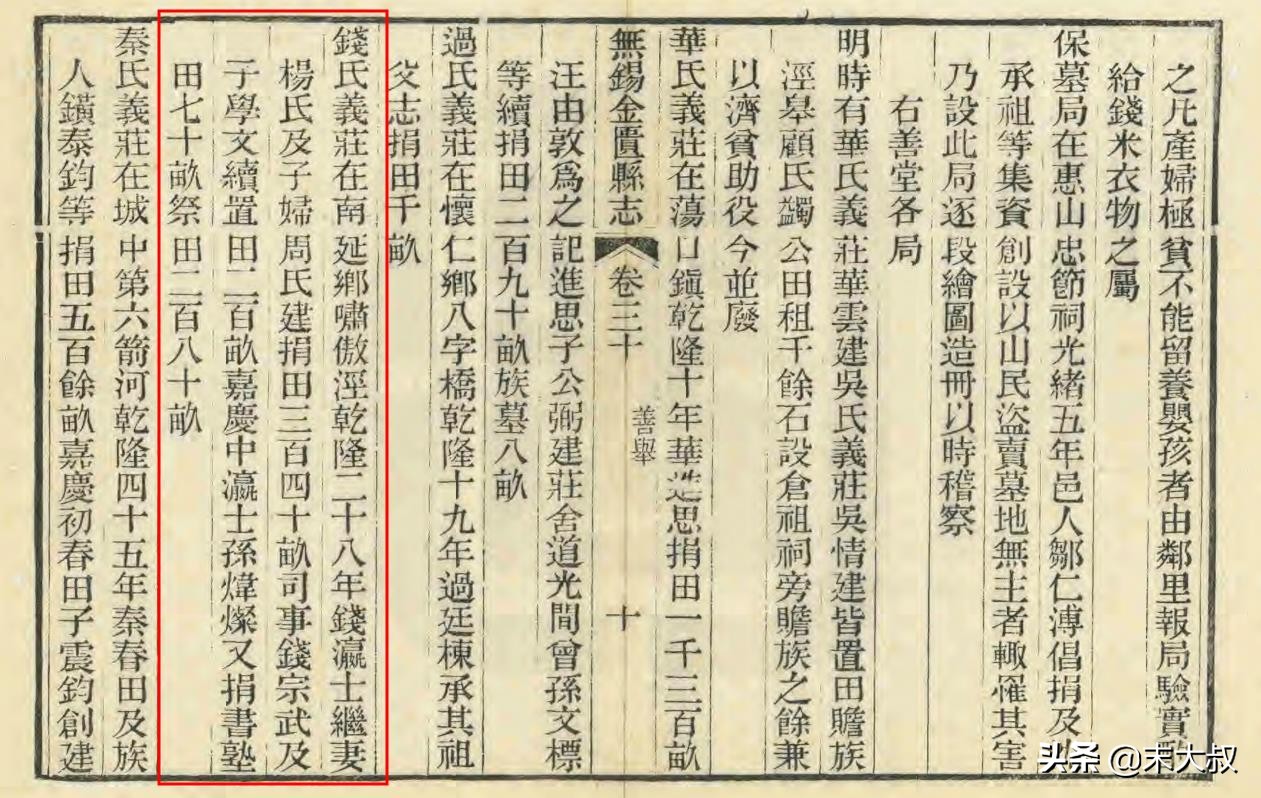 之凡產婦極貧不能留養嬰孩者由鄰里報局驗實
給錢米衣物之屬
保墓局在惠山忠節祠光緒五年邑人鄒仁溥倡捐及
承祖等集資創設以山民盜賣墓地無主者輙罹其害
乃設此局逐段繪圖造冊以時稽察
右善堂各局
明時有華氏義莊華雲建吳氏義莊吳情建皆置田贍族
涇皋顧氏蠲公田租千餘石設倉祖祠旁贍族之餘兼
以濟貧助役今並廢
華氏義莊在蕩口鎮乾隆十年華進思捐田一千三百畝
無錫金匱縣志 卷三十 善舉 十
汪由敦為之記進思子公弼建莊舍道光間曾孫文標
等續捐田二百九十畝族墓八畝
過氏義莊在懷仁鄉八字橋乾隆十九年過廷棟承其祖
父志捐田千畝
錢氏義莊在南延鄉嘯傲涇乾隆二十八年錢瀛士繼妻
楊氏及子婦周氏建捐田三百四十畝司事錢宗武及
子學文續置田二百畝嘉慶中瀛士孫煒燦又捐書塾
田七十畝祭田二百八十畝
秦氏義莊在城中第六箭河乾隆四十五年秦春田及族
人鐄泰鈞等捐田五百餘畝嘉慶初春田子震鈞創建
头条 @末大叔